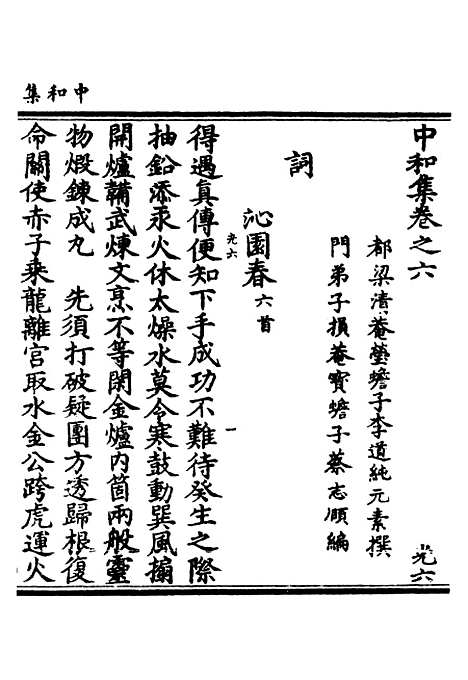 中和集
中和集卷之六
光六
都梁清菴瑩蟾子李道純元素撰
門弟子損菴寶蟾子蔡志頤編
詞
沁園春六首
光六
一
得遇真傳便知下手成功不難待癸生之際
抽鉛添汞火休太燥水莫令寒鼓動巽風搧
開爐鞴武煉文烹不等閑金爐内箇兩般靈
物煅鍊成丸　先須打破疑團方透歸根復
命關使赤子乘龍離宮取水金公跨虎運火